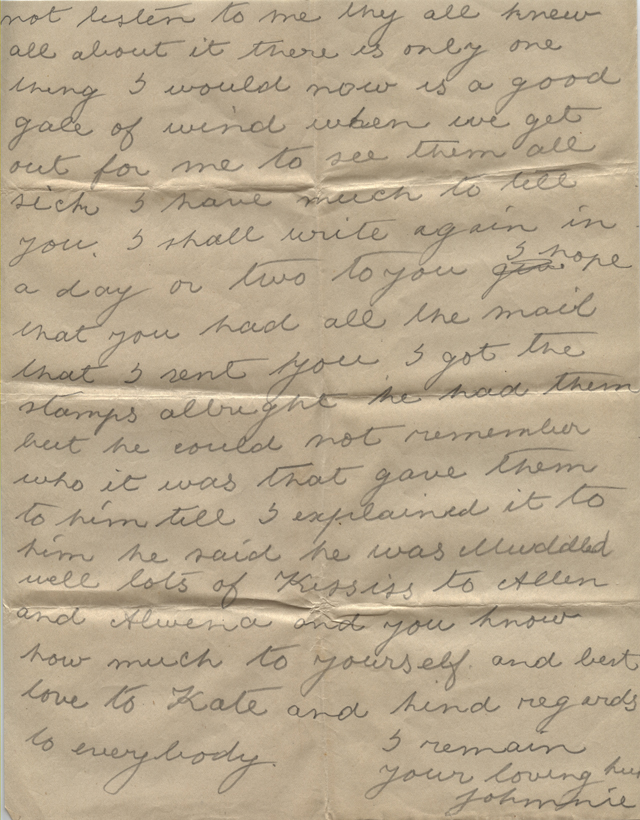 not listen to me thy all knew
all about it there is only one
thing I would now is a good
gale of wind when we get
out for me to see them all
sick I have much to tell
you. I shall write again in
a day or two to you I hope
that you had all the mail
that I sent you I got the
stamps allright he had them
but he could not remember
who it was that gave them
to him till I explained it to
him he said he was Muddled
well lots of Kississ to Allen
and Alwena and you know
how much to yourself. and best
love to Kate and kind regards
to everybody.
I remain
your loving
Johnnie